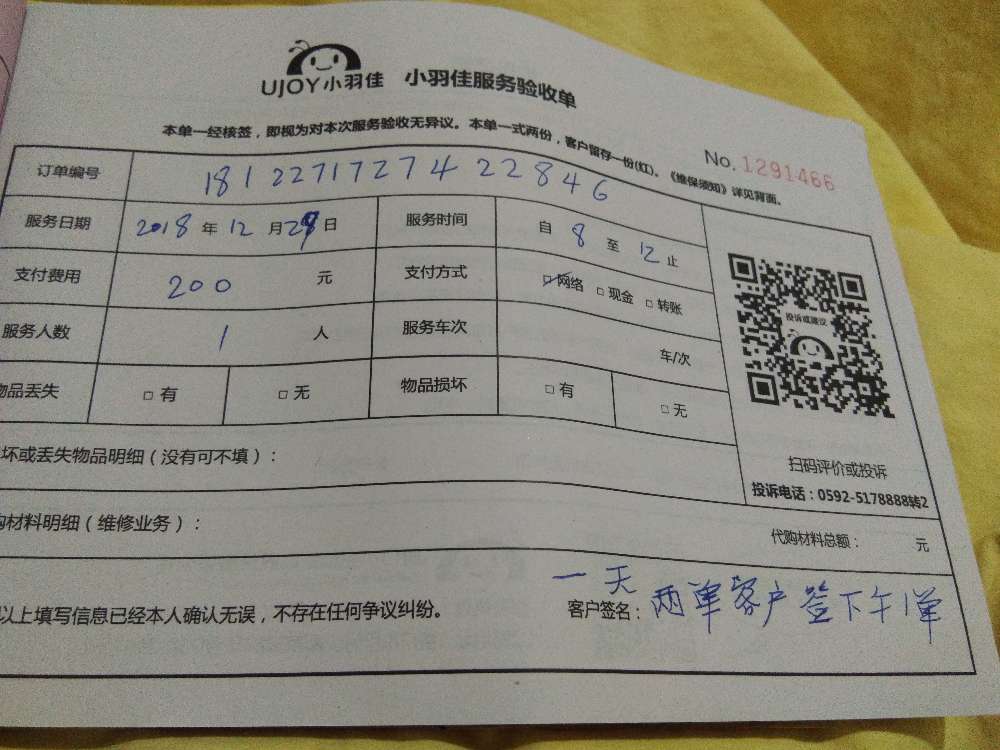 UJOY小羽佳 小羽佳服务验收单
本单一经核签，即视为对本次服务验收无异议。本单一式两份，客户留存一份(红)。《维保须知》详见背面。
No. 1291466
订单编号 18122717274 22846
服务日期 2018 年 12 月 29 日 服务时间 自 8 至 12 止
支付费用 200 元 支付方式 网络 现金 转账
服务人数 1 人 服务车次 车/次
物品丢失 有 无 物品损坏 有 无
投诉或建议
扫码评价或投诉
投诉电话：0592-5178888转2
坏或丢失物品明细（没有可不填）：
购材料明细（维修业务）： 代购材料总额： 元
以上填写信息已经本人确认无误，不存在任何争议纠纷。
客户签名： 一天两单客户签下午1单